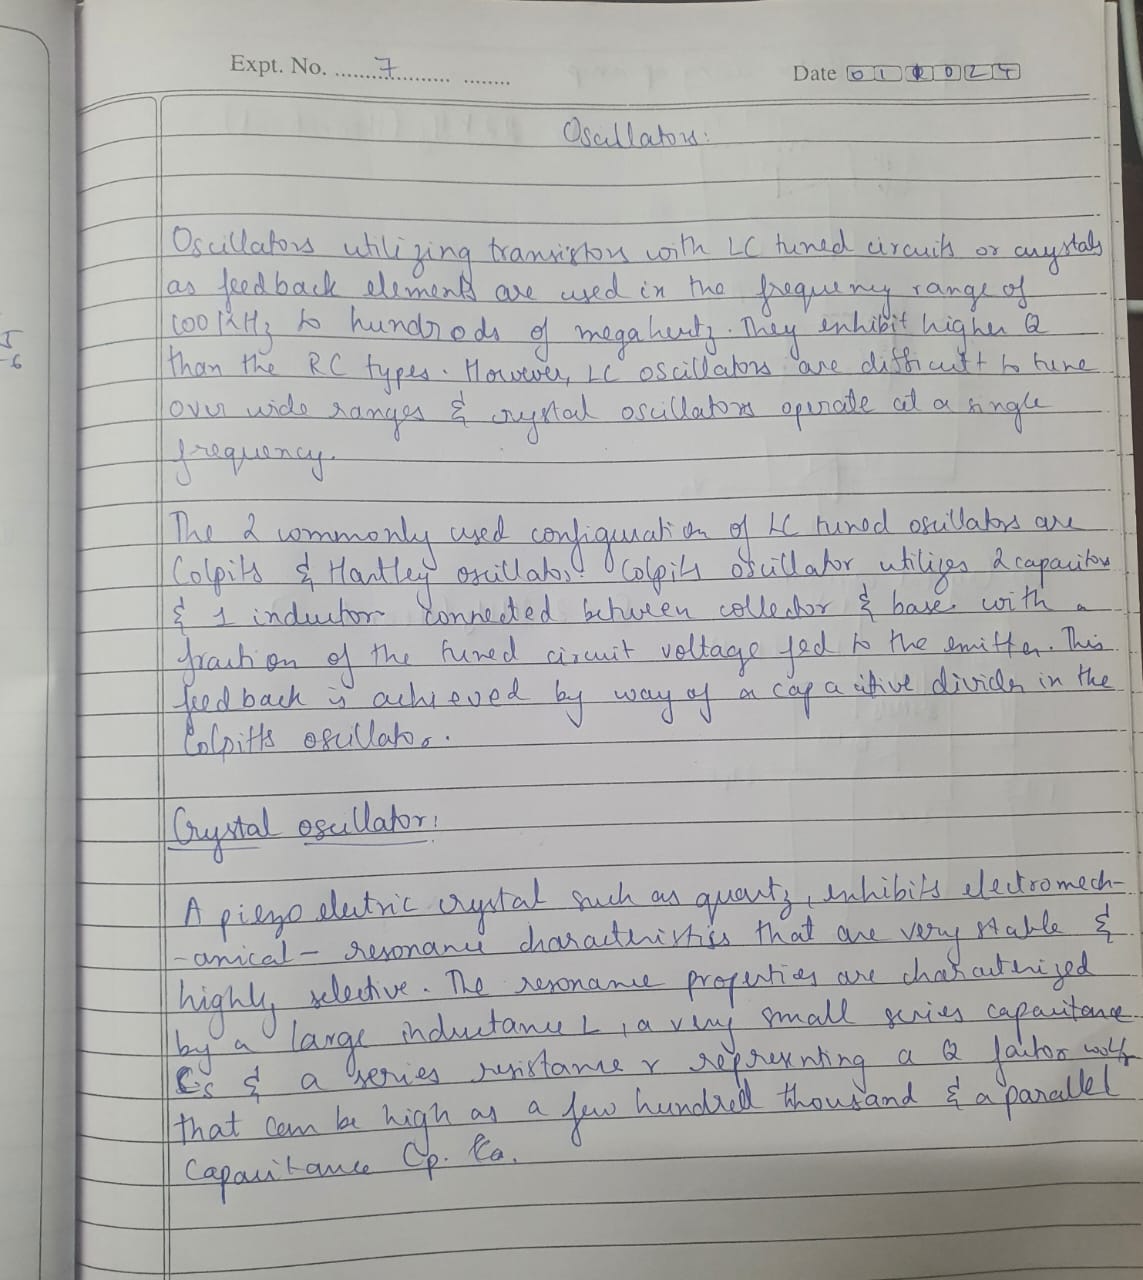 Expt. No. 7
Date 011024
Oscillators:
Oscillators utilizing transistors with LC tuned circuits or crystals
as feedback elements are used in the frequency range of
100 KHz to hundrods of megahertz. They enhibit higher Q
than the RC types. However, LC oscillators are difficult to tune
over wide ranges & crystal oscillators operate at a single
frequency.
The 2 commonly used configuration of LC tuned oscillators are
Colpits & Hartley oscillator. Colpits oscillator utilizes 2 capacitors
& 1 inductor connected between collector & base with a
fraction of the tuned circuit voltage fed to the emitter. This
feedback is achieved by way of a capacitive divider in the
Colpitts oscillator.
Crystal oscillator:
A piezo electric crystal such as quartz, enhibits electromech-
-anical- resonance characteristics that are very stable &
highly selective. The resonance properties are characterized
by a large inductance L, a very small series capacitance
Cs & a series resistance r representing a Q factor
that can be high as a few hundred thousand & a parallel
Capacitance Cp.
5
-6